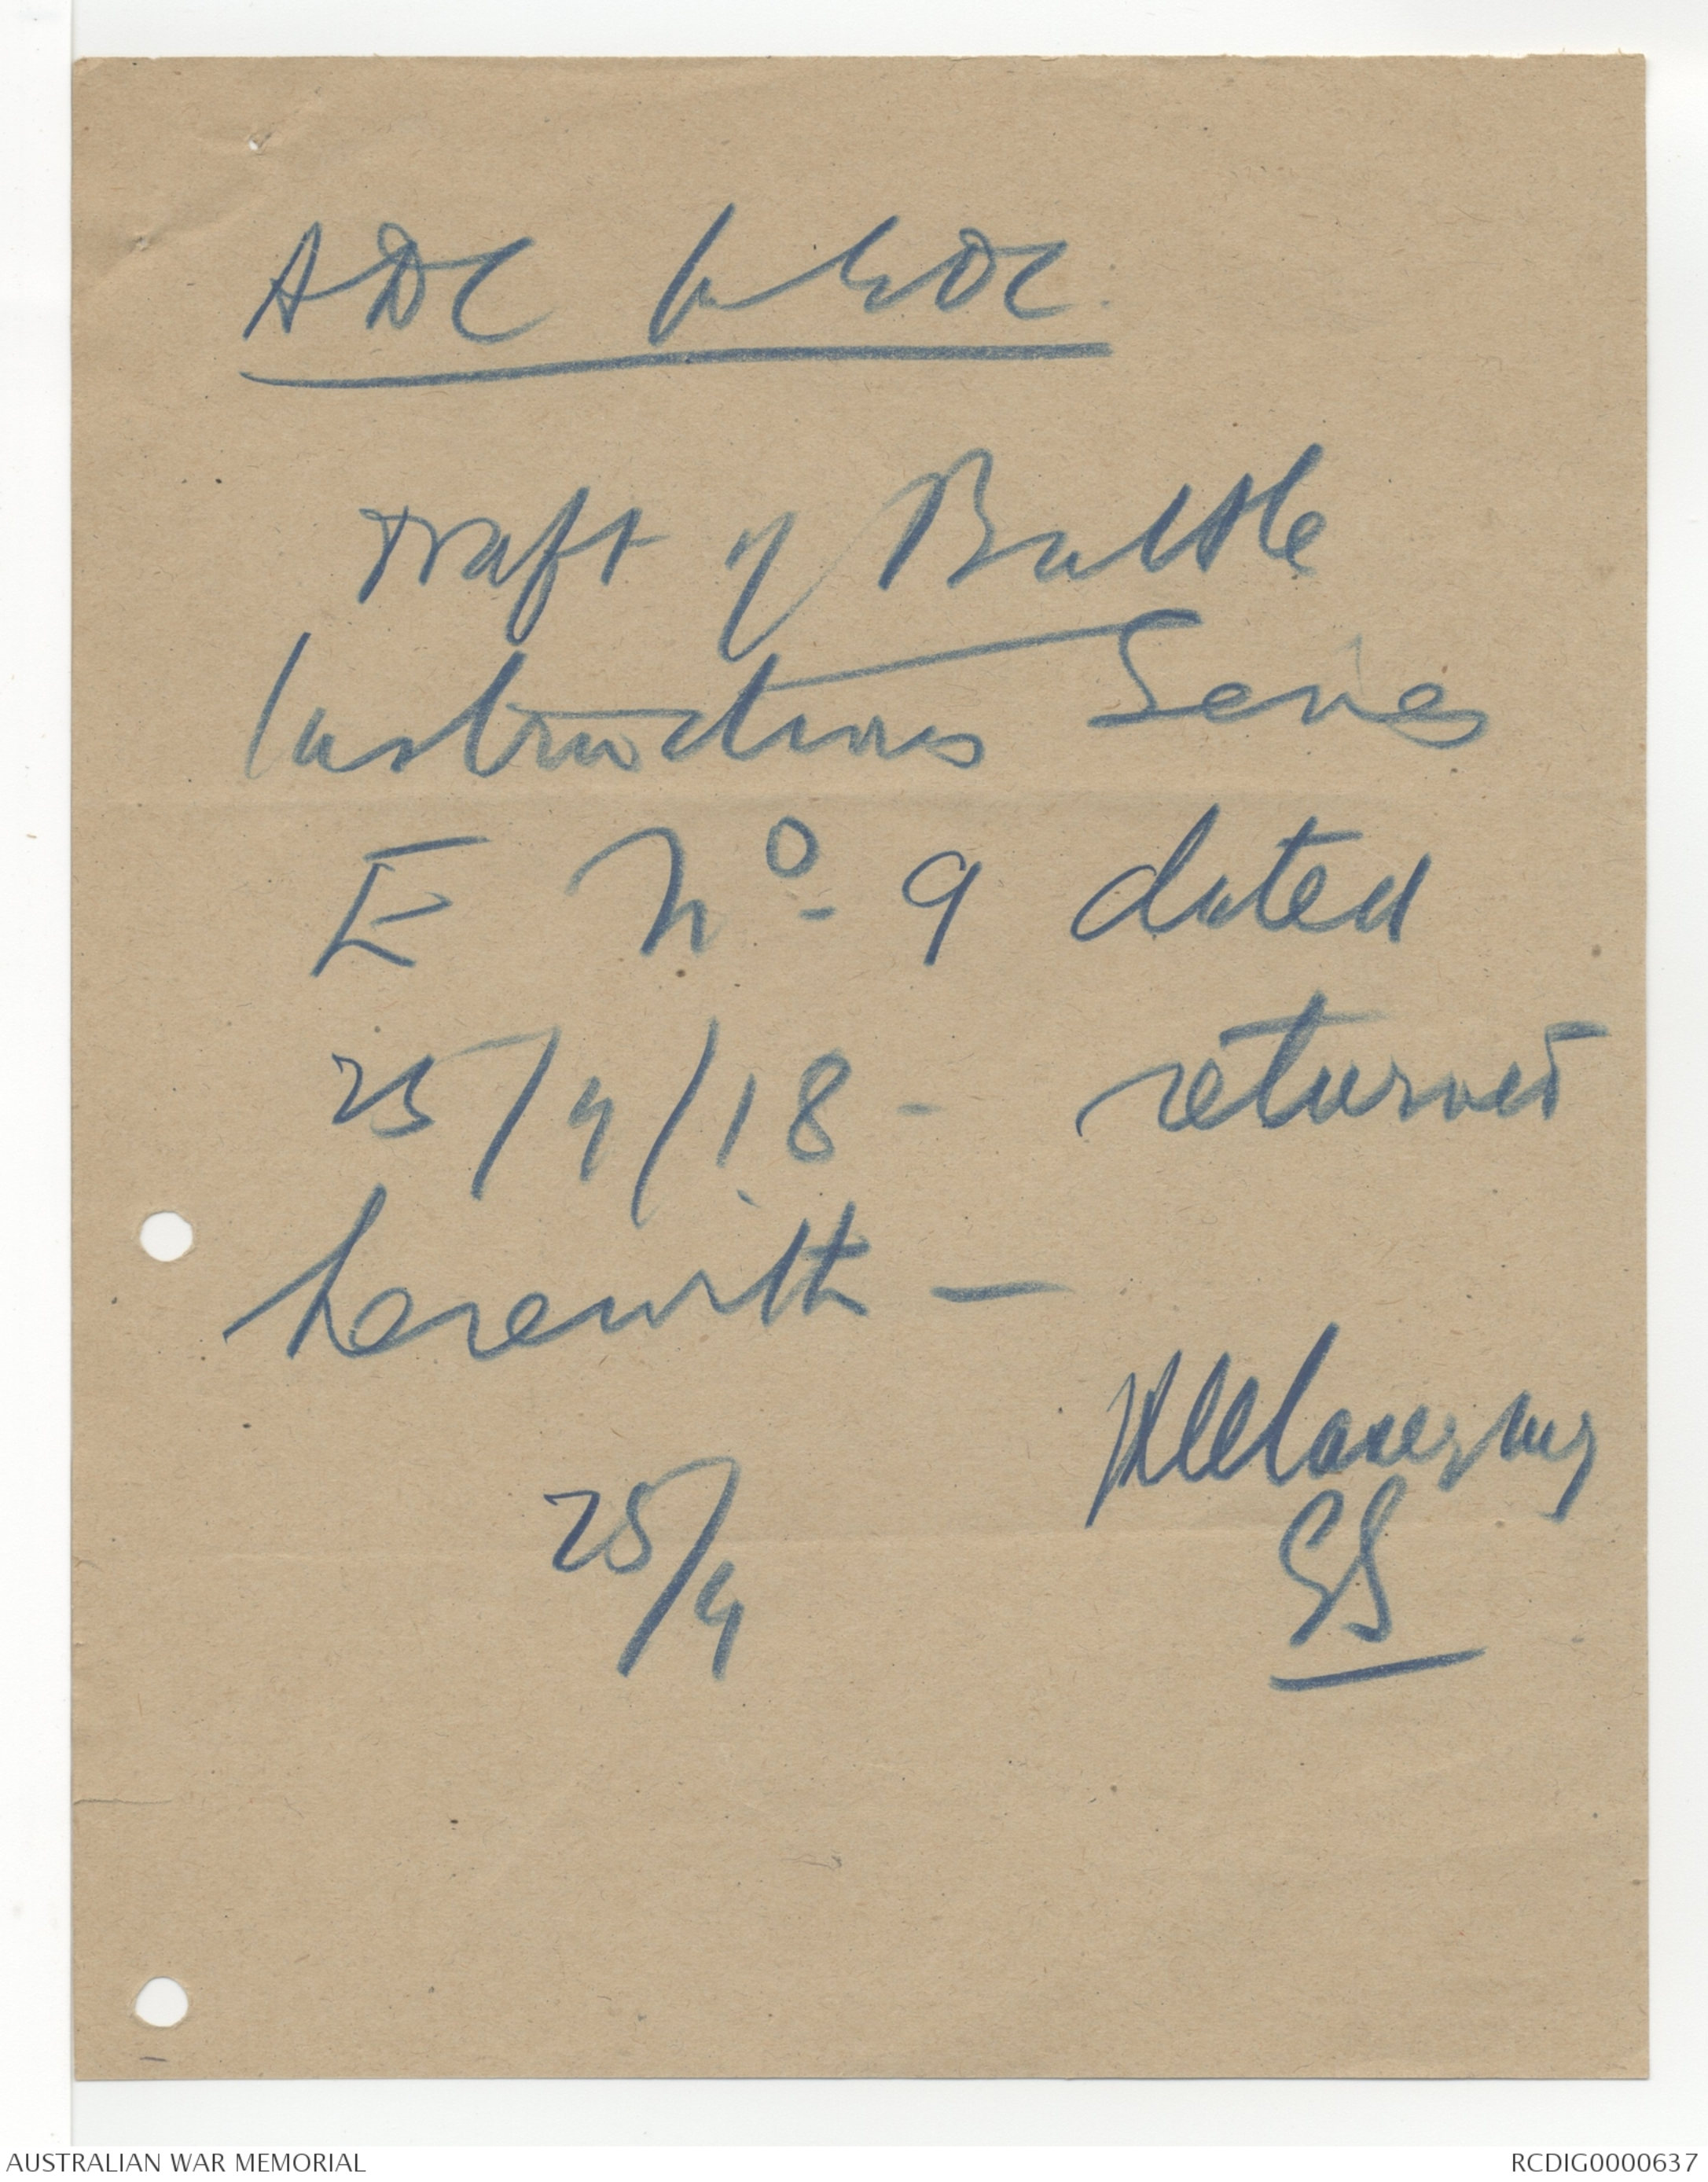 ADC for GOC.
Draft of Battle
Instructions Series
E No 9 dated
25/4/18 - returned
herewith —
GS
25/4
AUSTRALIAN WAR MEMORIAL
RCDIG0000637